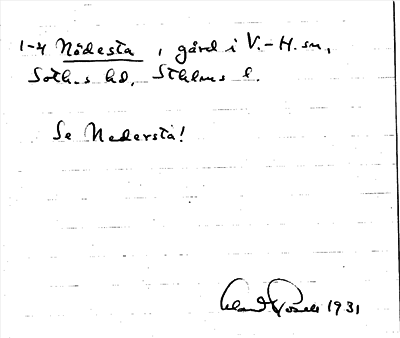 1-4 Nådesta, gård i V.-H. sn,
Soth.s hd, Sthlms l.
Se Nedersta!
1931